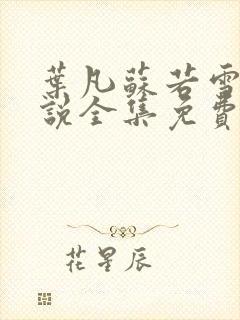 葉凡蘇若雪
說全集免費
花星辰